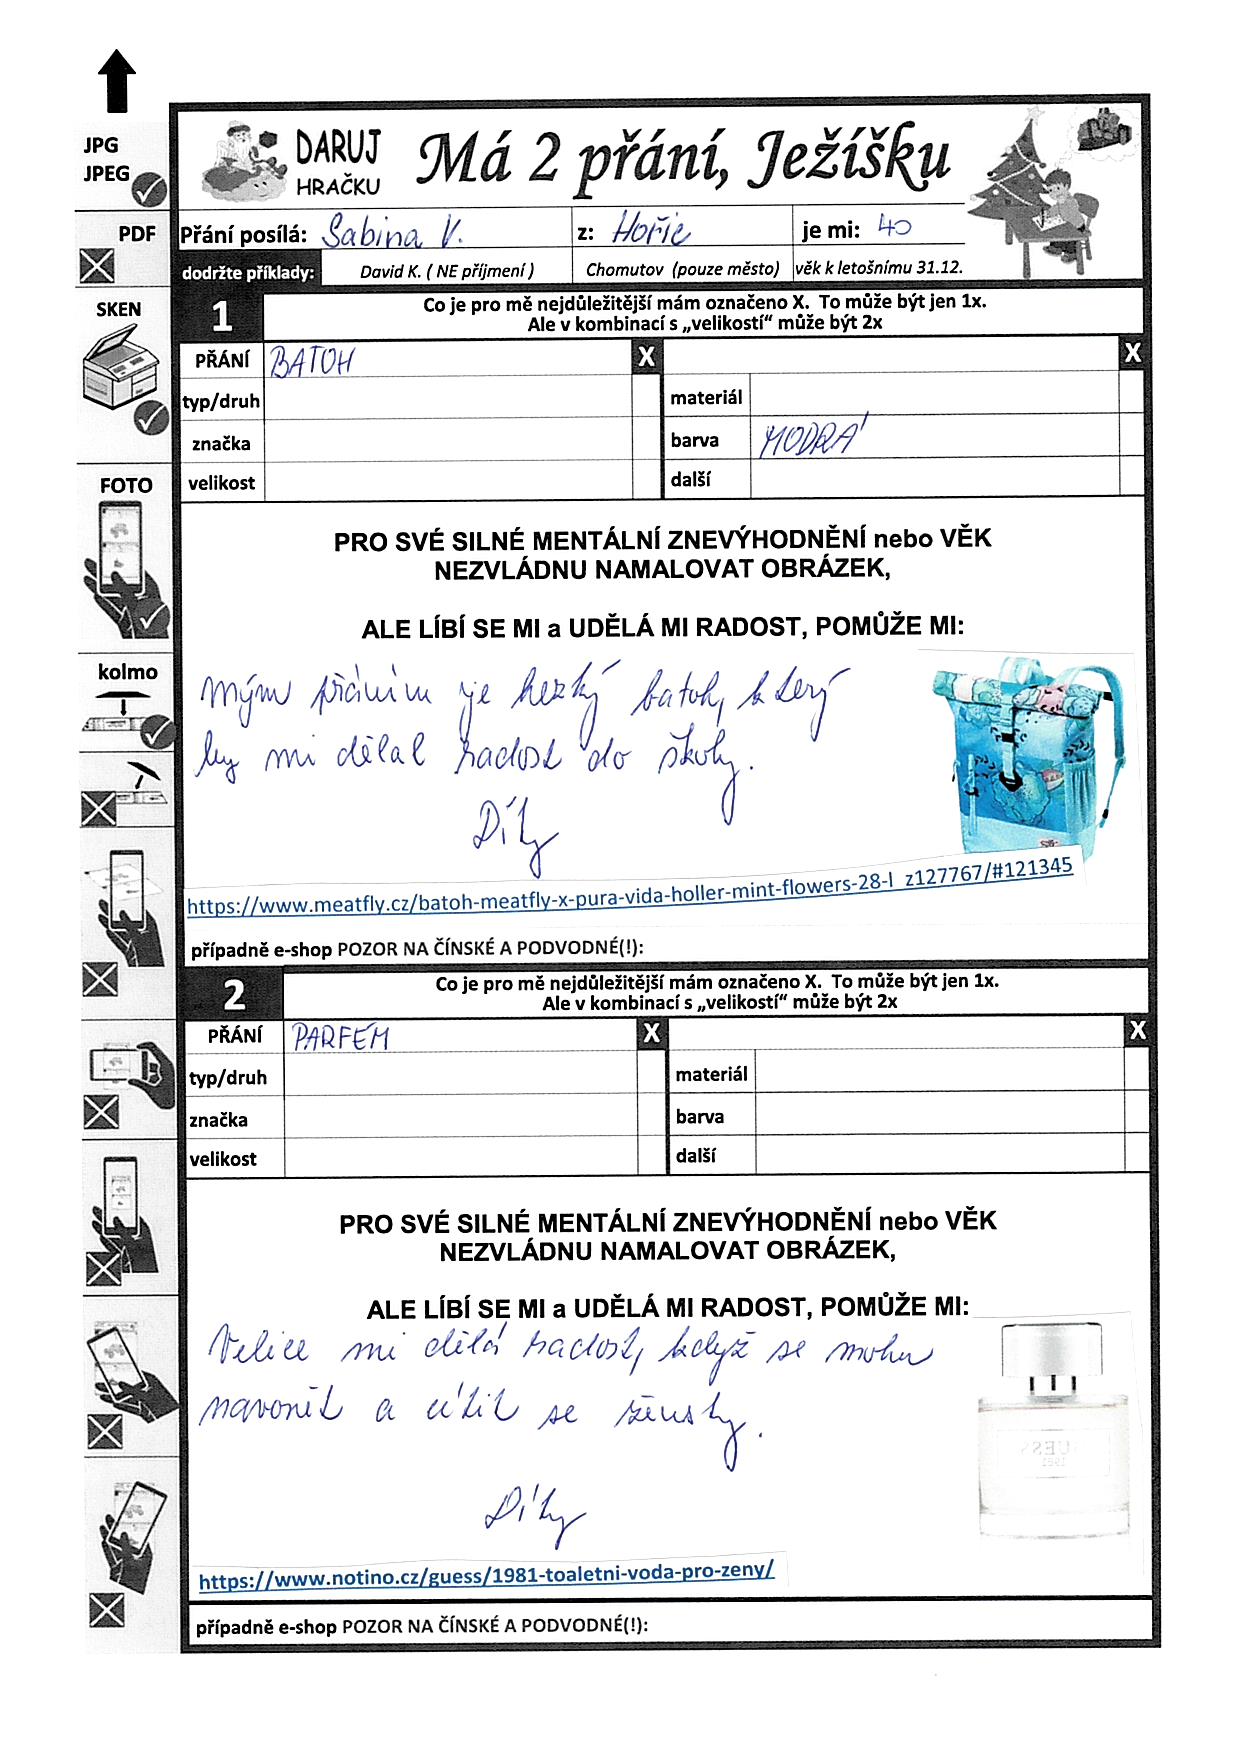 JPG
JPEG
PDF
SKEN
FOTO
kolmo
DARUJ
HRAČKU
Má 2 přání, Ježíšku
Přání posílá: Sabina V. z: Hořic je mi: 40
dodržte příklady: David K. ( NE příjmení ) Chomutov (pouze město) věk k letošnímu 31.12.
1 Co je pro mě nejdůležitější mám označeno X. To může být jen 1x.
Ale v kombinací s „velikostí“ může být 2x
PŘÁNÍ BATOH X X
typ/druh materiál
značka barva MODRÁ
velikost další
PRO SVÉ SILNÉ MENTÁLNÍ ZNEVÝHODNĚNÍ nebo VĚK
NEZVLÁDNU NAMALOVAT OBRÁZEK,
ALE LÍBÍ SE MI a UDĚLÁ MI RADOST, POMŮŽE MI:
Mým přáním je hezký batoh, který
by mi dělal radost do školy.
Díky
https://www.meatfly.cz/batoh-meatfly-x-pura-vida-holler-mint-flowers-28-l_z127767/#121345
případně e-shop POZOR NA ČÍNSKÉ A PODVODNÉ(!):
2 Co je pro mě nejdůležitější mám označeno X. To může být jen 1x.
Ale v kombinací s „velikostí“ může být 2x
PŘÁNÍ PARFÉM X X
typ/druh materiál
značka barva
velikost další
PRO SVÉ SILNÉ MENTÁLNÍ ZNEVÝHODNĚNÍ nebo VĚK
NEZVLÁDNU NAMALOVAT OBRÁZEK,
ALE LÍBÍ SE MI a UDĚLÁ MI RADOST, POMŮŽE MI:
Velice mi dělá radost, když se mohu
navonět a cítit se žensky.
Díky
GUESS
1981
https://www.notino.cz/guess/1981-toaletni-voda-pro-zeny/
případně e-shop POZOR NA ČÍNSKÉ A PODVODNÉ(!):